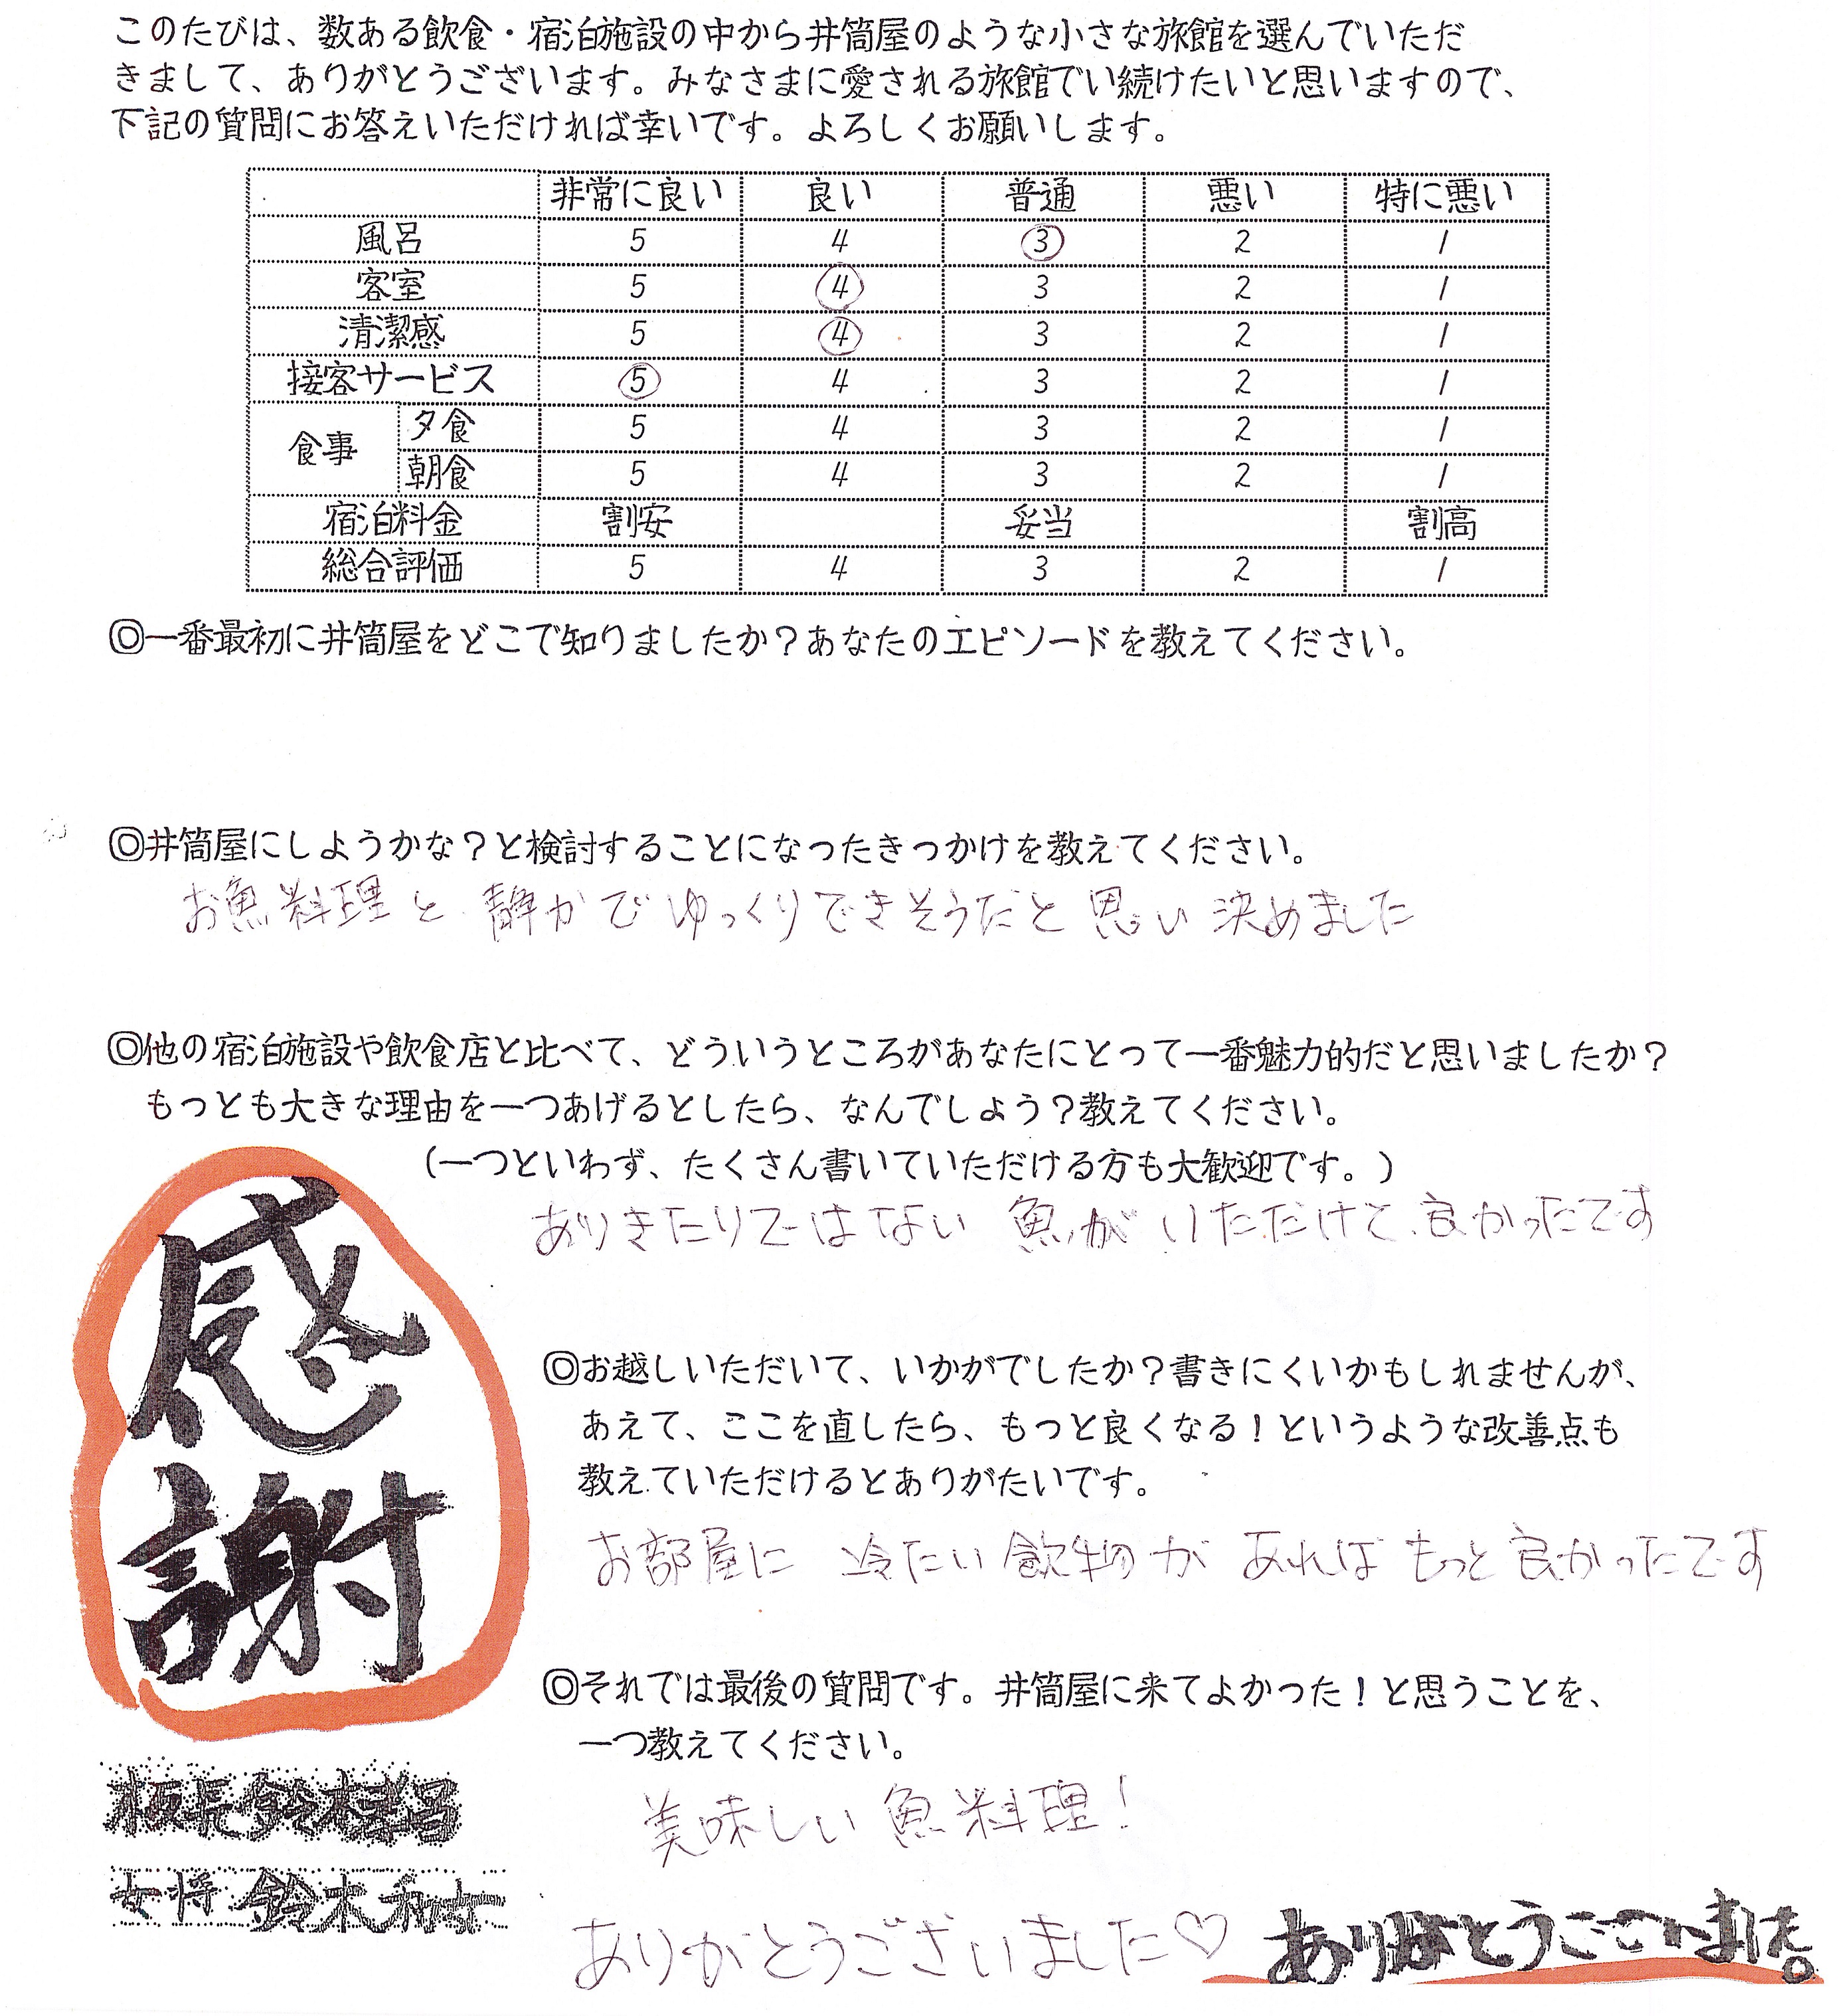 このたびは、数ある飲食・宿泊施設の中から井筒屋のような小さな旅館を選んでいただ
きまして、ありがとうございます。みなさまに愛される旅館でい続けたいと思いますので、
下記の質問にお答えいただければ幸いです。よろしくお願いします。
非常に良い 良い 普通 悪い 特に悪い
風呂 5 4 3 2 1
客室 5 4 3 2 1
清潔感 5 4 3 2 1
接客サービス 5 4 3 2 1
食事
夕食 5 4 3 2 1
朝食 5 4 3 2 1
宿泊料金 割安 妥当 割高
総合評価 5 4 3 2 1
◎一番最初に井筒屋をどこで知りましたか？あなたのエピソードを教えてください。
◎井筒屋にしようかな？と検討することになったきっかけを教えてください。
お魚料理と静かでゆっくりできそうだと思い決めました
◎他の宿泊施設や飲食店と比べて、どういうところがあなたにとって一番魅力的だと思いましたか？
もっとも大きな理由を一つあげるとしたら、なんでしょう？教えてください。
（一つといわず、たくさん書いていただける方も大歓迎です。）
ありきたりではない魚がいただけて良かったです
感謝
◎お越しいただいて、いかがでしたか？書きにくいかもしれませんが、
あえて、ここを直したら、もっと良くなる！というような改善点も
教えていただけるとありがたいです。
お部屋に冷たい飲物があればもっと良かったです
◎それでは最後の質問です。井筒屋に来てよかった！と思うことを、
一つ教えてください。
美味しい魚料理！
板長 鈴木
女将 鈴木
ありがとうございました♡
ありがとうございました。